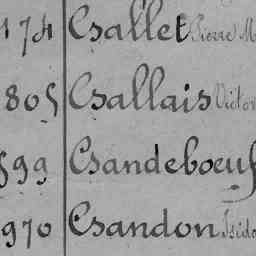 174 Gallet Pierre M
805 Gallais Victor
599 Gandeboeuf
970 Gandon Isido